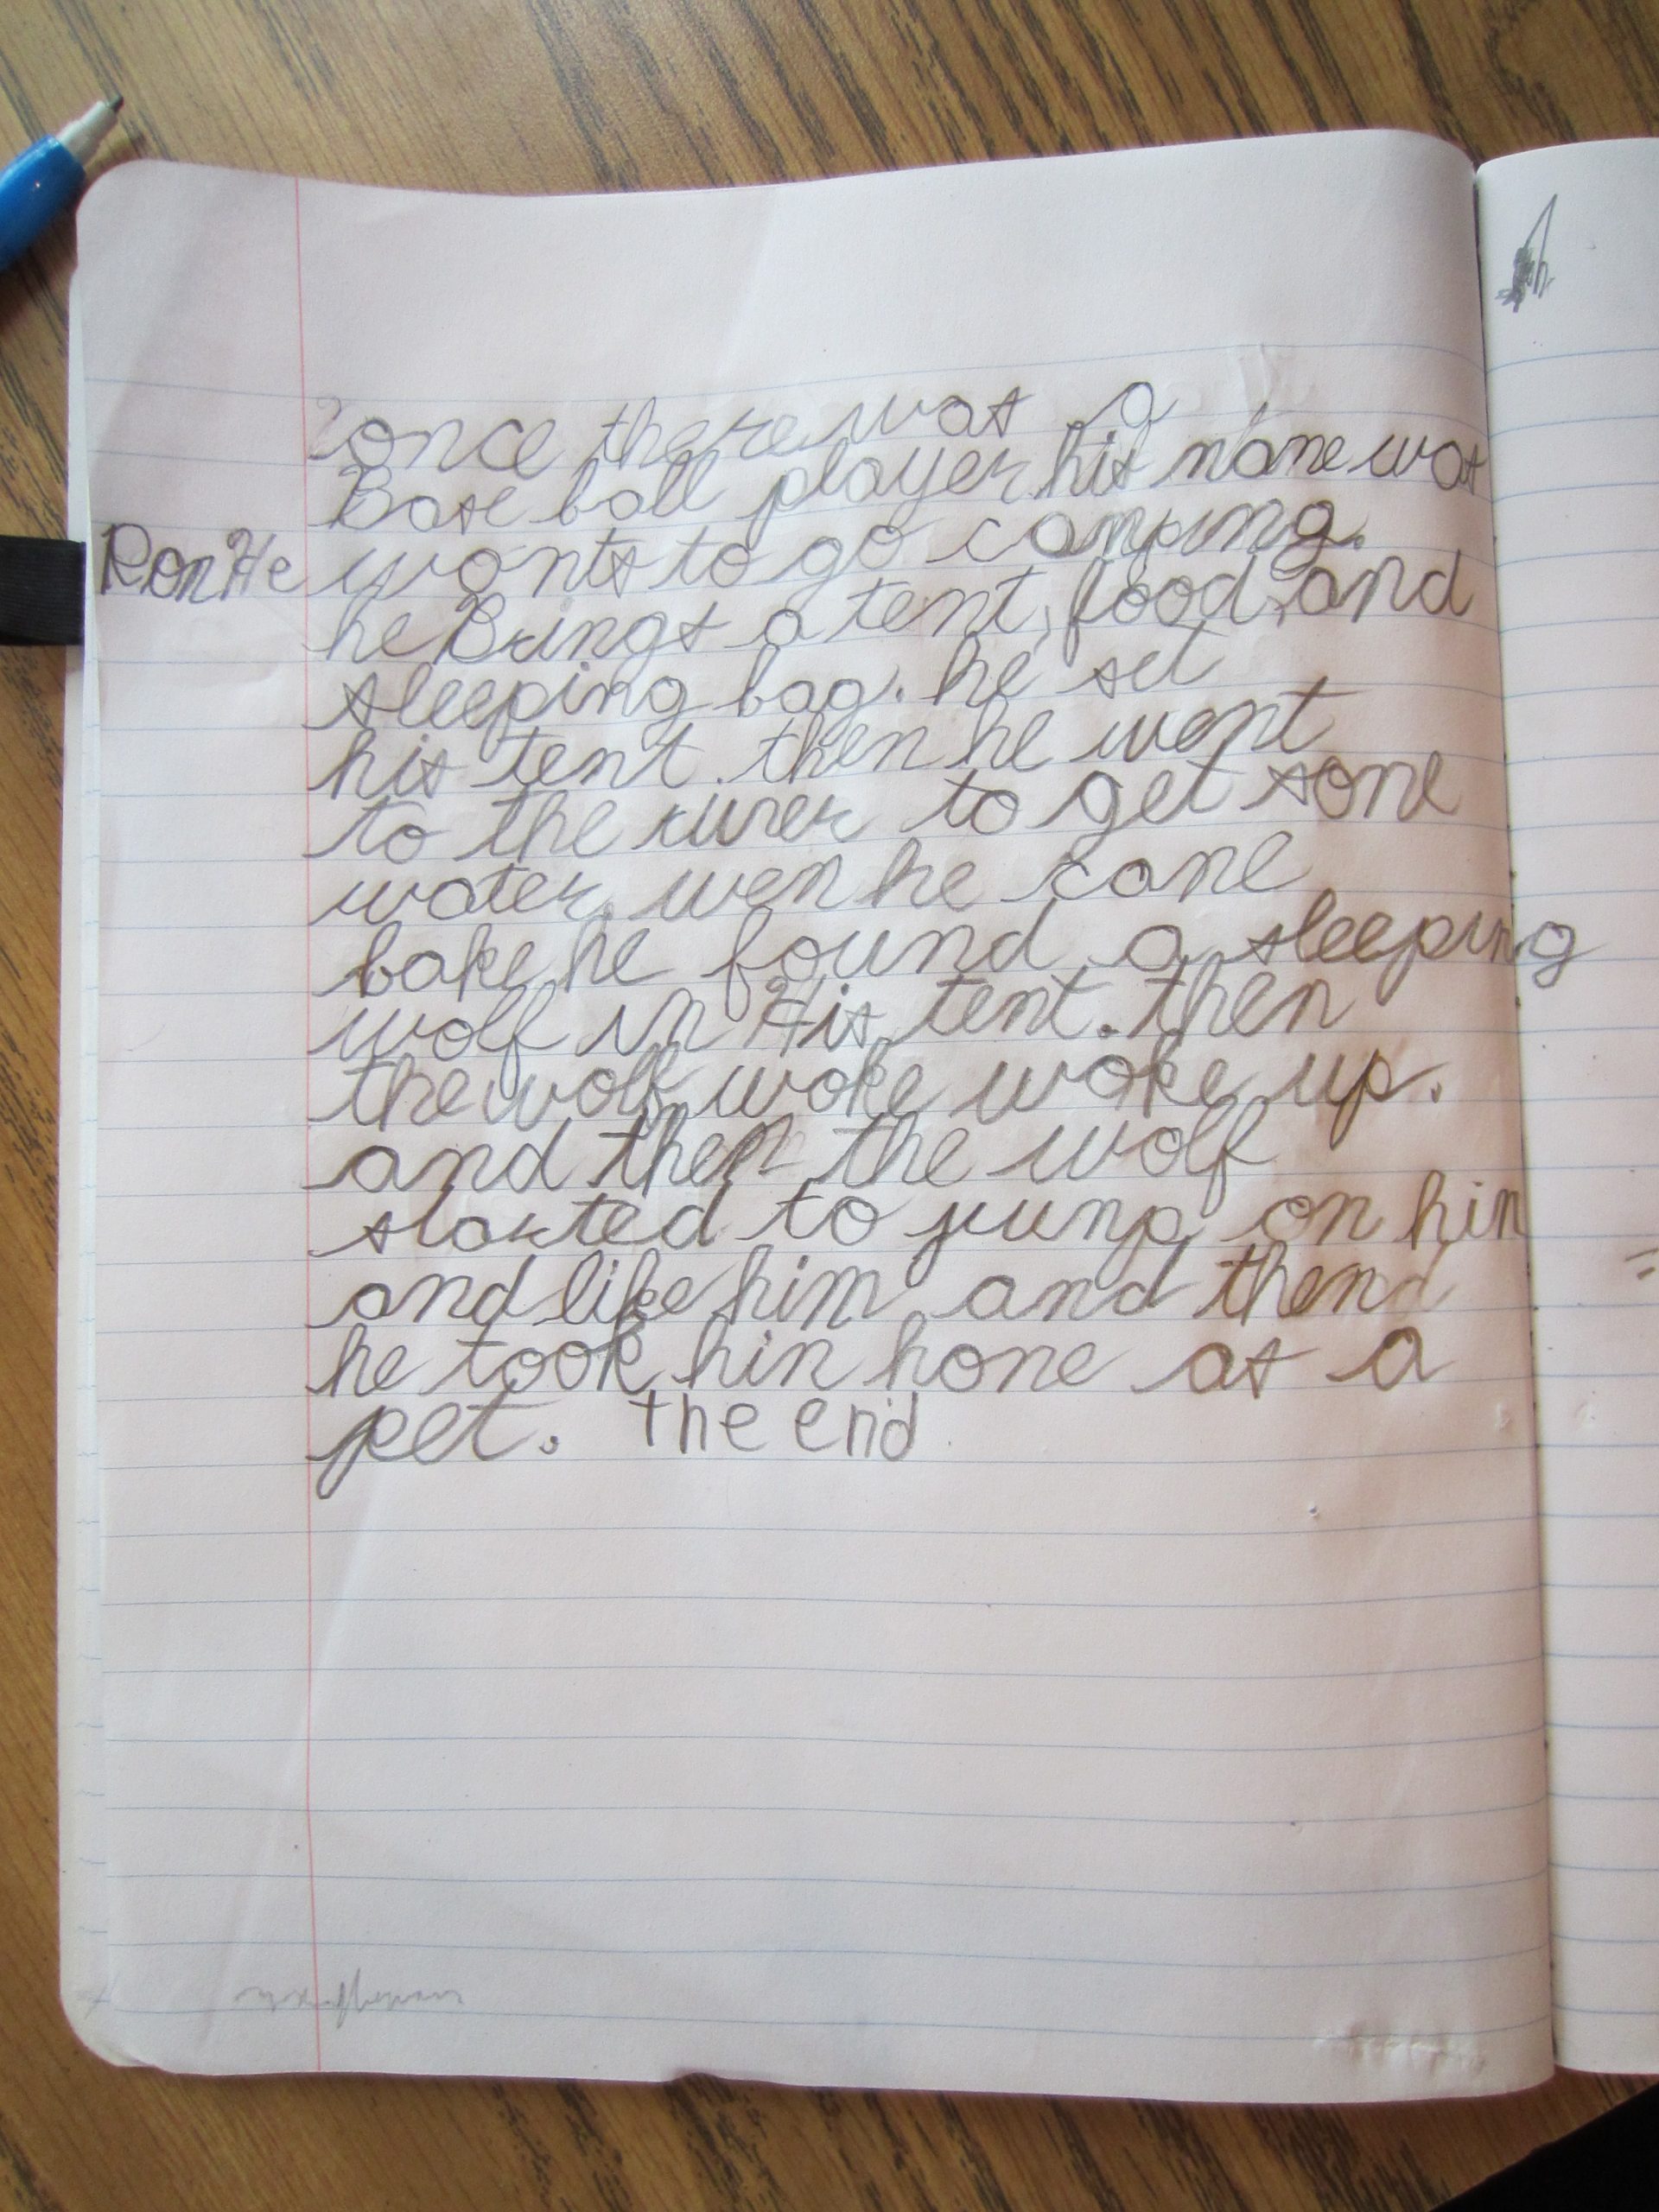 once there was a
Base ball player his name was
Ron He wants to go camping.
he Brings a tent, food, and
sleeping bag. he set
his tent. then he went
to the river to get some
water. wen he came
bake he found a sleeping
wolf in His tent. then
the wolf woke woke up.
and then the wolf
started to jump on him
and like him and thend
he took him home as a
pet. the end